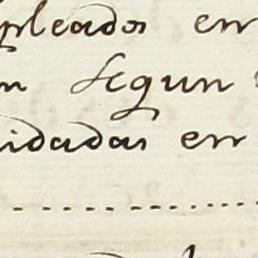 pleados en
n segun
idadas en